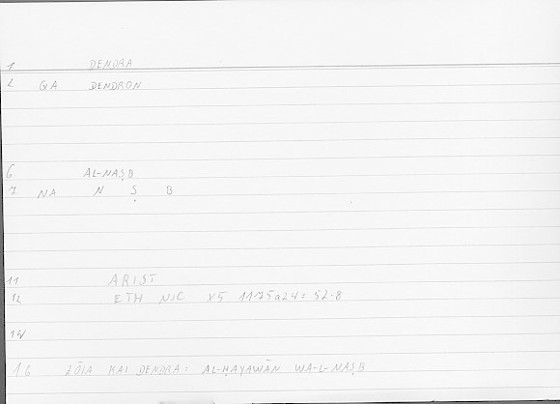 1 DENDRA
2 GA DENDRON
6 AL-NAṢB
7 NA N Ṣ B
11 ARIST
12 ETH NIC X5 1175a24: 52.8
14
16 ZŌIA KAI DENDRA: AL-ḤAYAWĀN WA-L-NAṢB